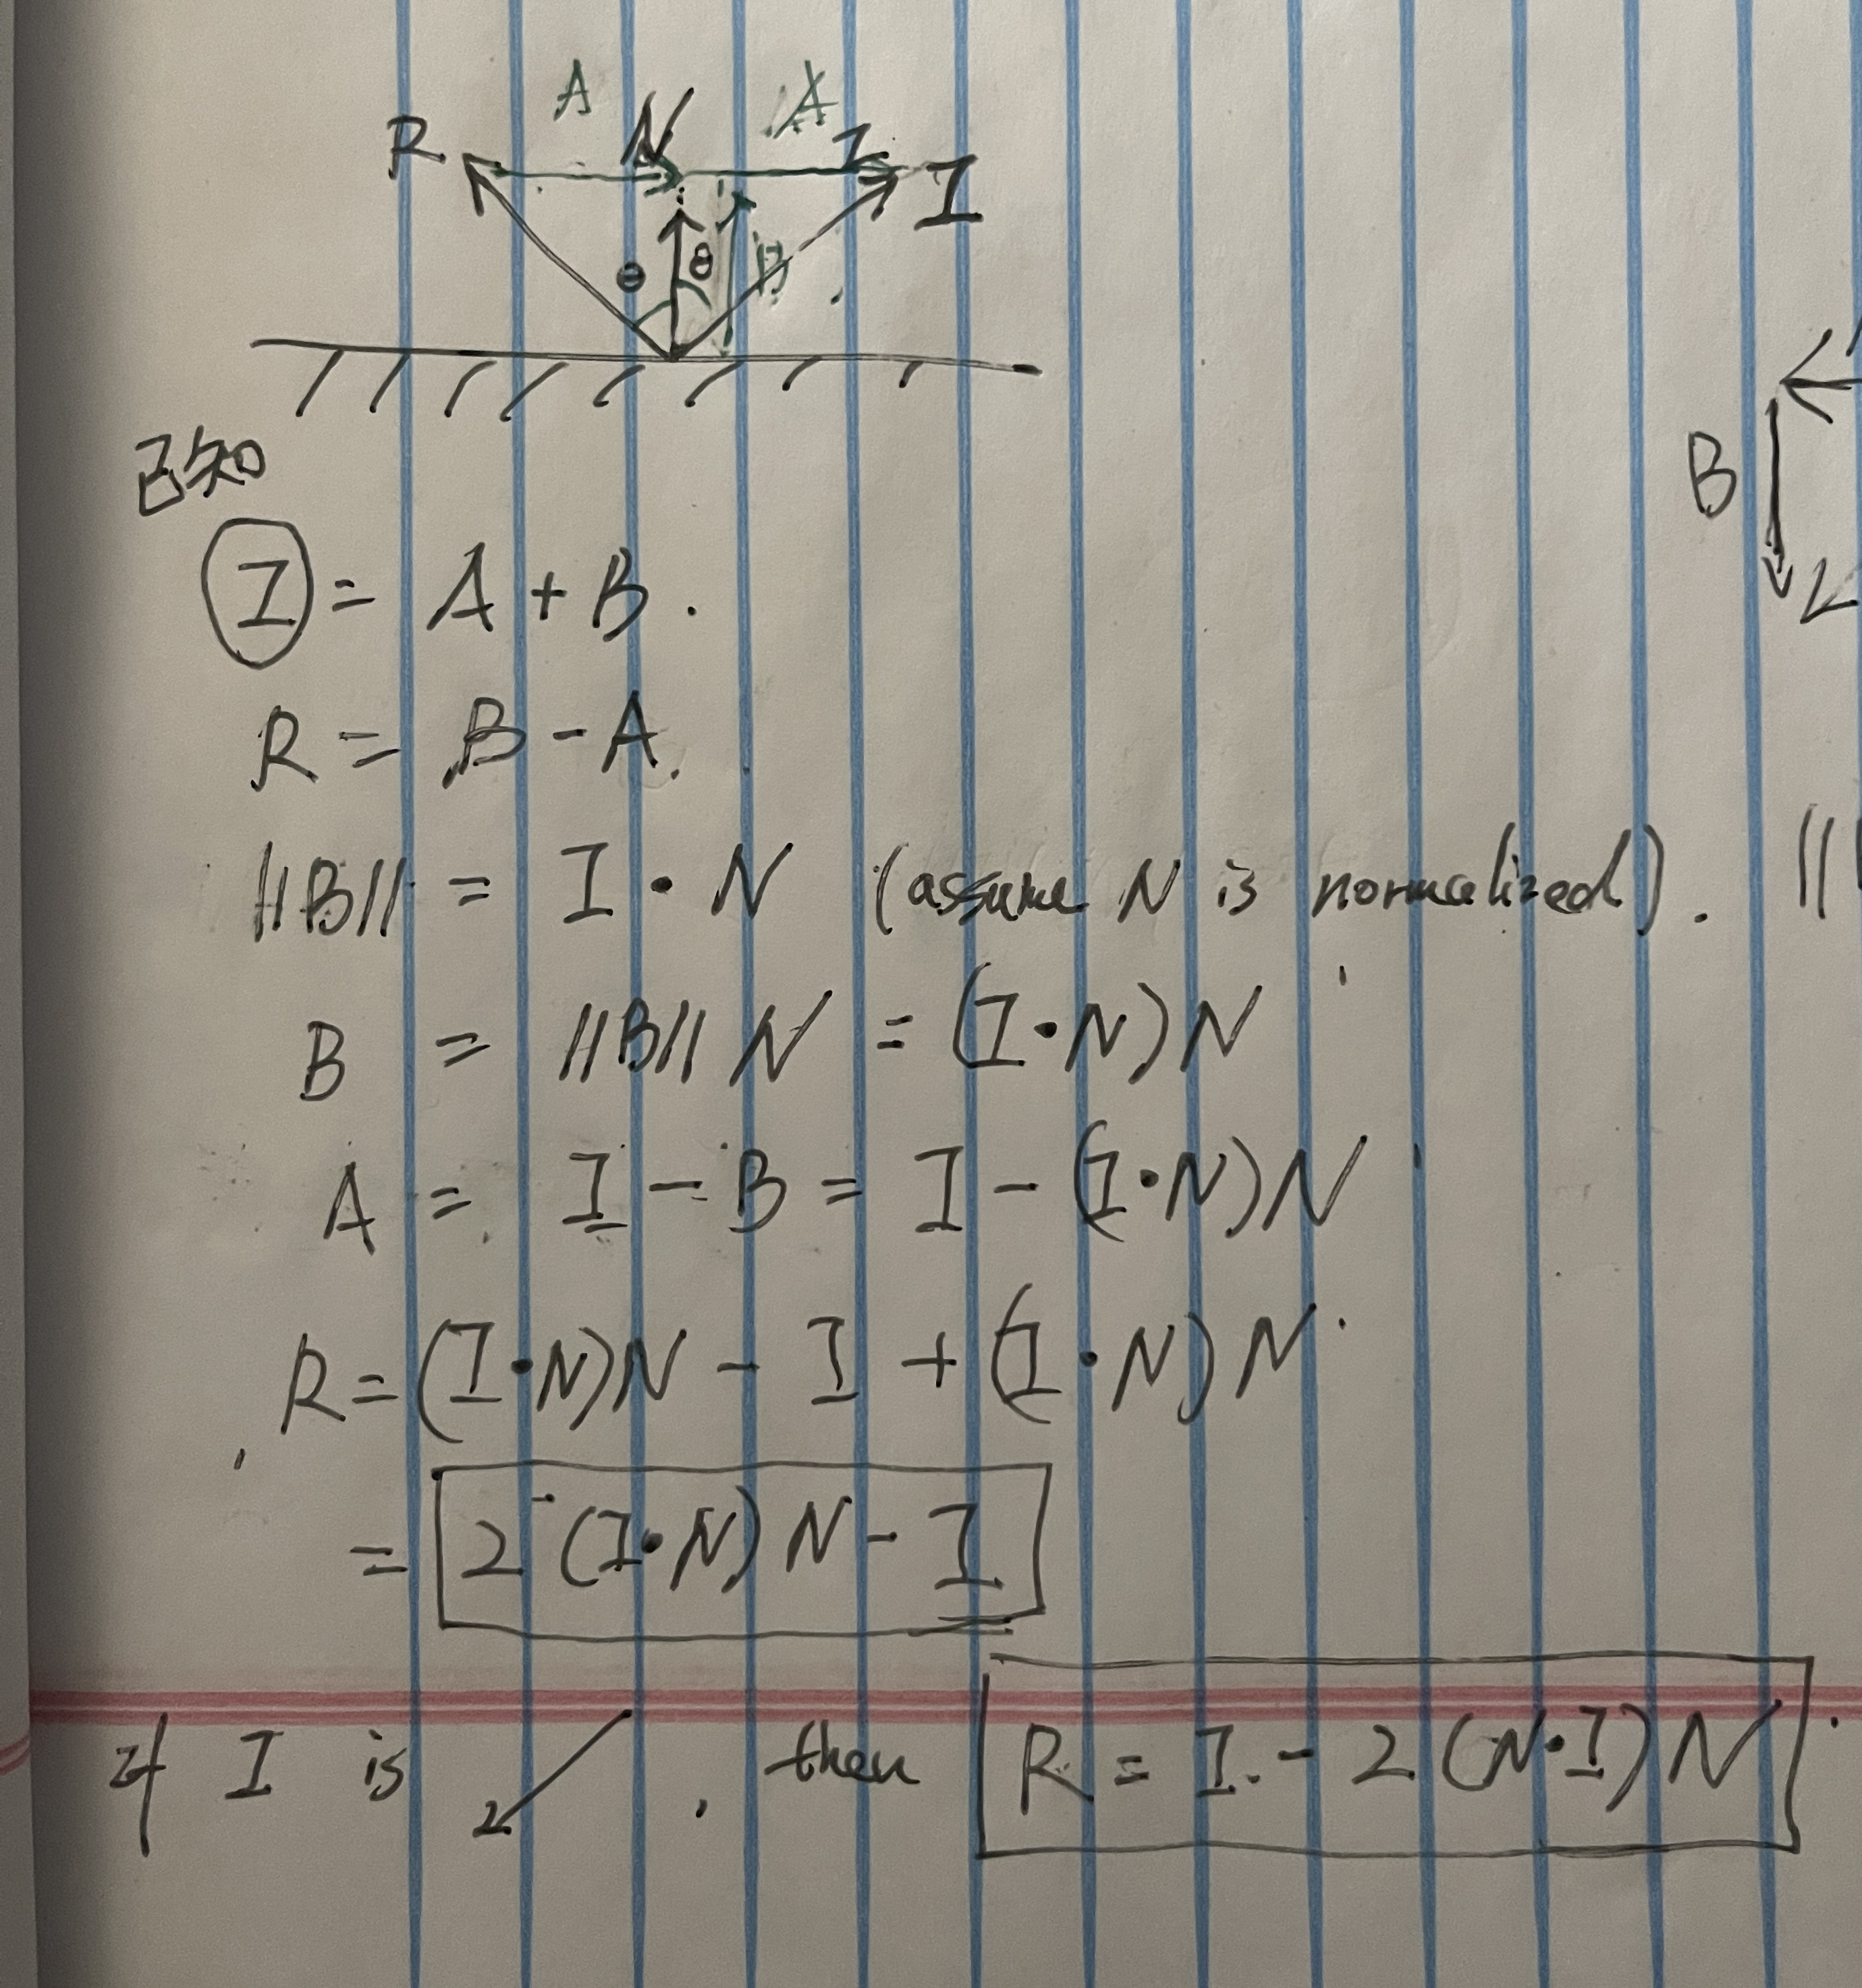 A A
R N I
I
θ θ B
已知
I = A + B .
R = B - A.
||B|| = I • N (assume N is normalized). ||
B = ||B|| N = (I•N)N
B
A = I - B = I - (I•N)N
R = (I•N)N - I + (I•N)N.
= 2 (I•N) N - I
if I is ↙ , then R = I - 2 (N•I) N .